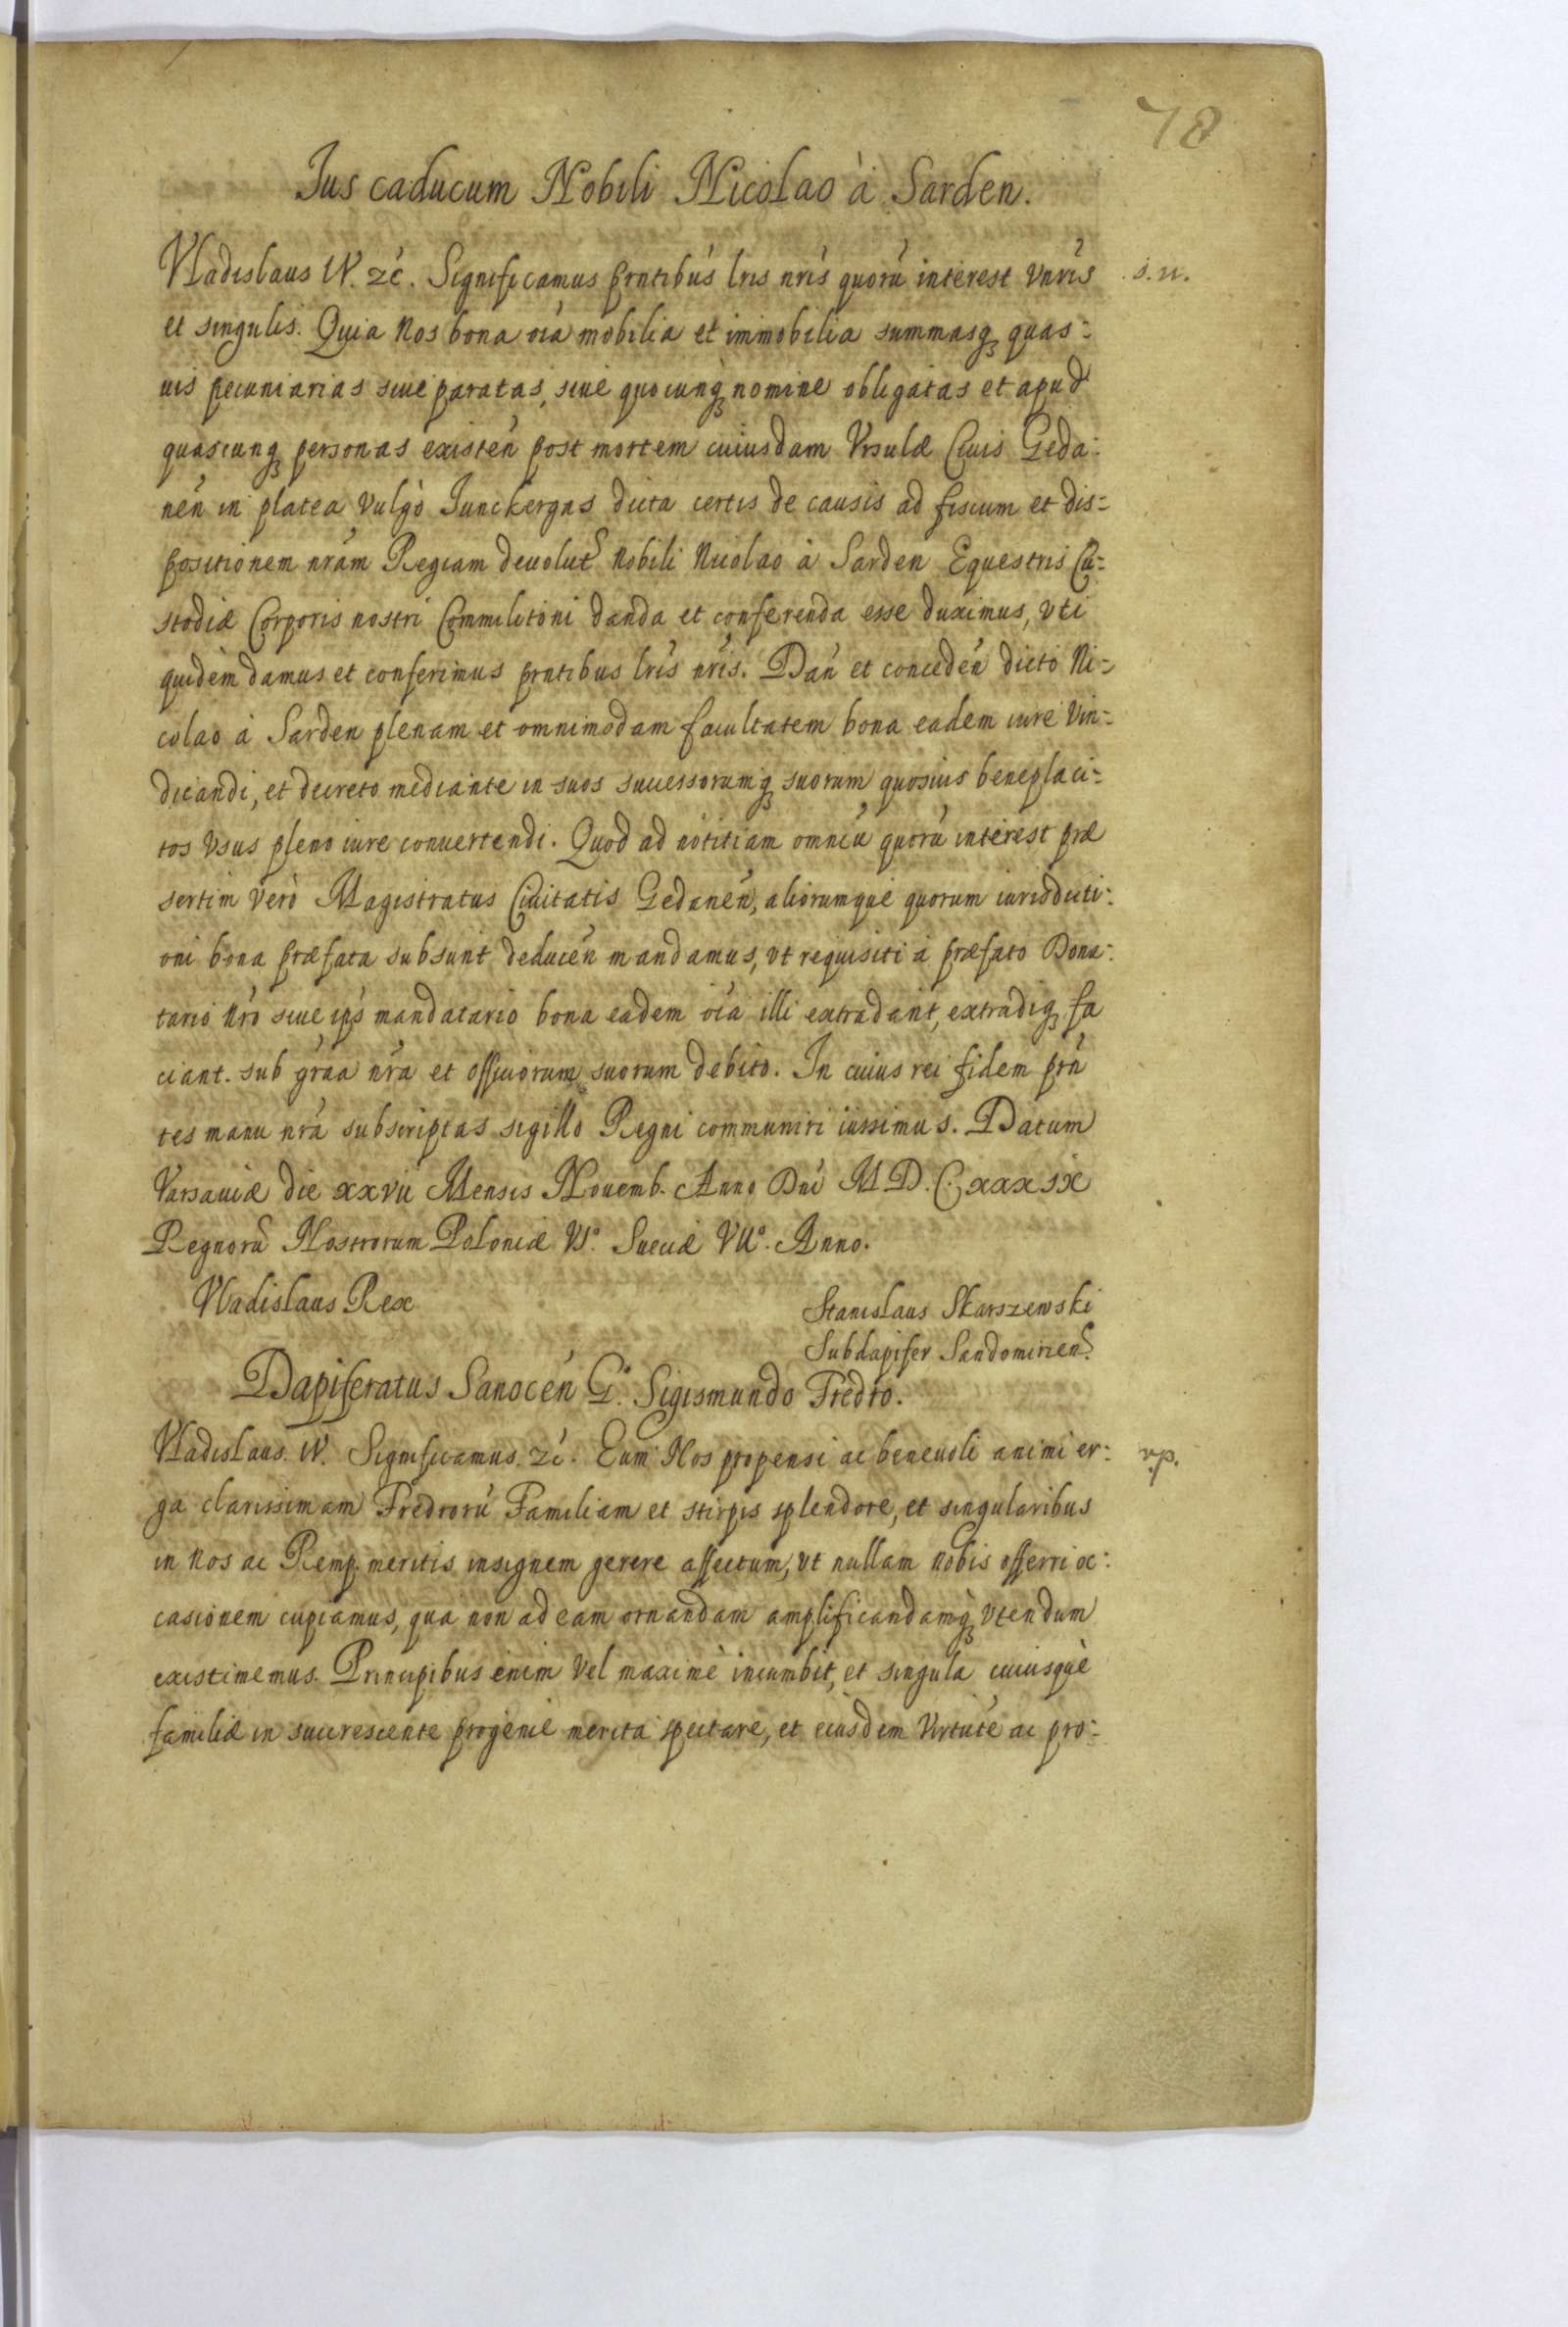 78
Ius caducum Nobili Nicolao à Sarden.
Vladislaus IV. zc̀. Significamus prntibùs lris nris quorù interest vnvis s. n.
et singulis. Quia Nos bona oia mobilia et immobilia summasq, quas:
uis pecuniarias siue paratas, siue quocunq, nomine obligatas et apud
quascunq, personas existen̄ post mortem cuiusdam Vrsulæ Ciuis Geda:
nen̄ in platea vulgò Junckergas dicta certis de causis ad fiscum et dis=
positionem nram Regiam deuolut. Nobili Nicolao à Sarden Equestris Cu:
stodiæ Corporis nostri Commilitoni danda et conferenda esse duximus, vti
quidem damus et conferimus prntibus lris nris. Dan̄ et conceden̄ dicto Ni=
colao à Sarden plenam et omnimodam facultatem bona eadem iure vin=
dicandi, et decreto mediante in suos successorumq, suorum quosuis beneplaci=
tos vsus pleno iure conuertendi. Quod ad notitiam omniū quorū interest præ
sertim verò Magistratus Ciuitatis Gedanen̄, aliorumque quorum iurisdicti:
oni bona præfata subsunt deducen̄ mandamus, vt requisiti à præfato Dona:
tario nrò siue ips mandatario bona eadem oia illi extradant, extradiq, fa
ciant. sub graa nra et officiorum suorum debito. In cuius rei fidem prn̄
tes manu nra subscriptas sigillo Regni communiri iussimus. Datum
Varsauiæ die xxvii Mensis Nouemb. Anno Dni M D. C. xxxix
Regnorū Nostrorum Poloniæ VI.º Sueciæ VII.º Anno.
Vladislaus Rex
Stanislaus Skarszewski
Subdapifer Sandomirien.
Dapiferatus Sanocen̄ G. Sigismundo Fredro.
Vladislaus. IV. Significamus. zc̀. Eum Nos propensi ac beneuoli animi er: rp.
ga clarissimam Fredrorū Familiam et stirpis splendore, et singularibus
in Nos ac Remp. meritis insignem gerere affectum, vt nullam nobis offerri oc:
casionem cupiamus, qua non ad eam ornandam amplificandamq, vtendum
existimemus. Principibus enim vel maximè incumbit, et singula cuiusquè
familiæ in succrescente progenie merita spectare, et eiusdem virtute ac pro: